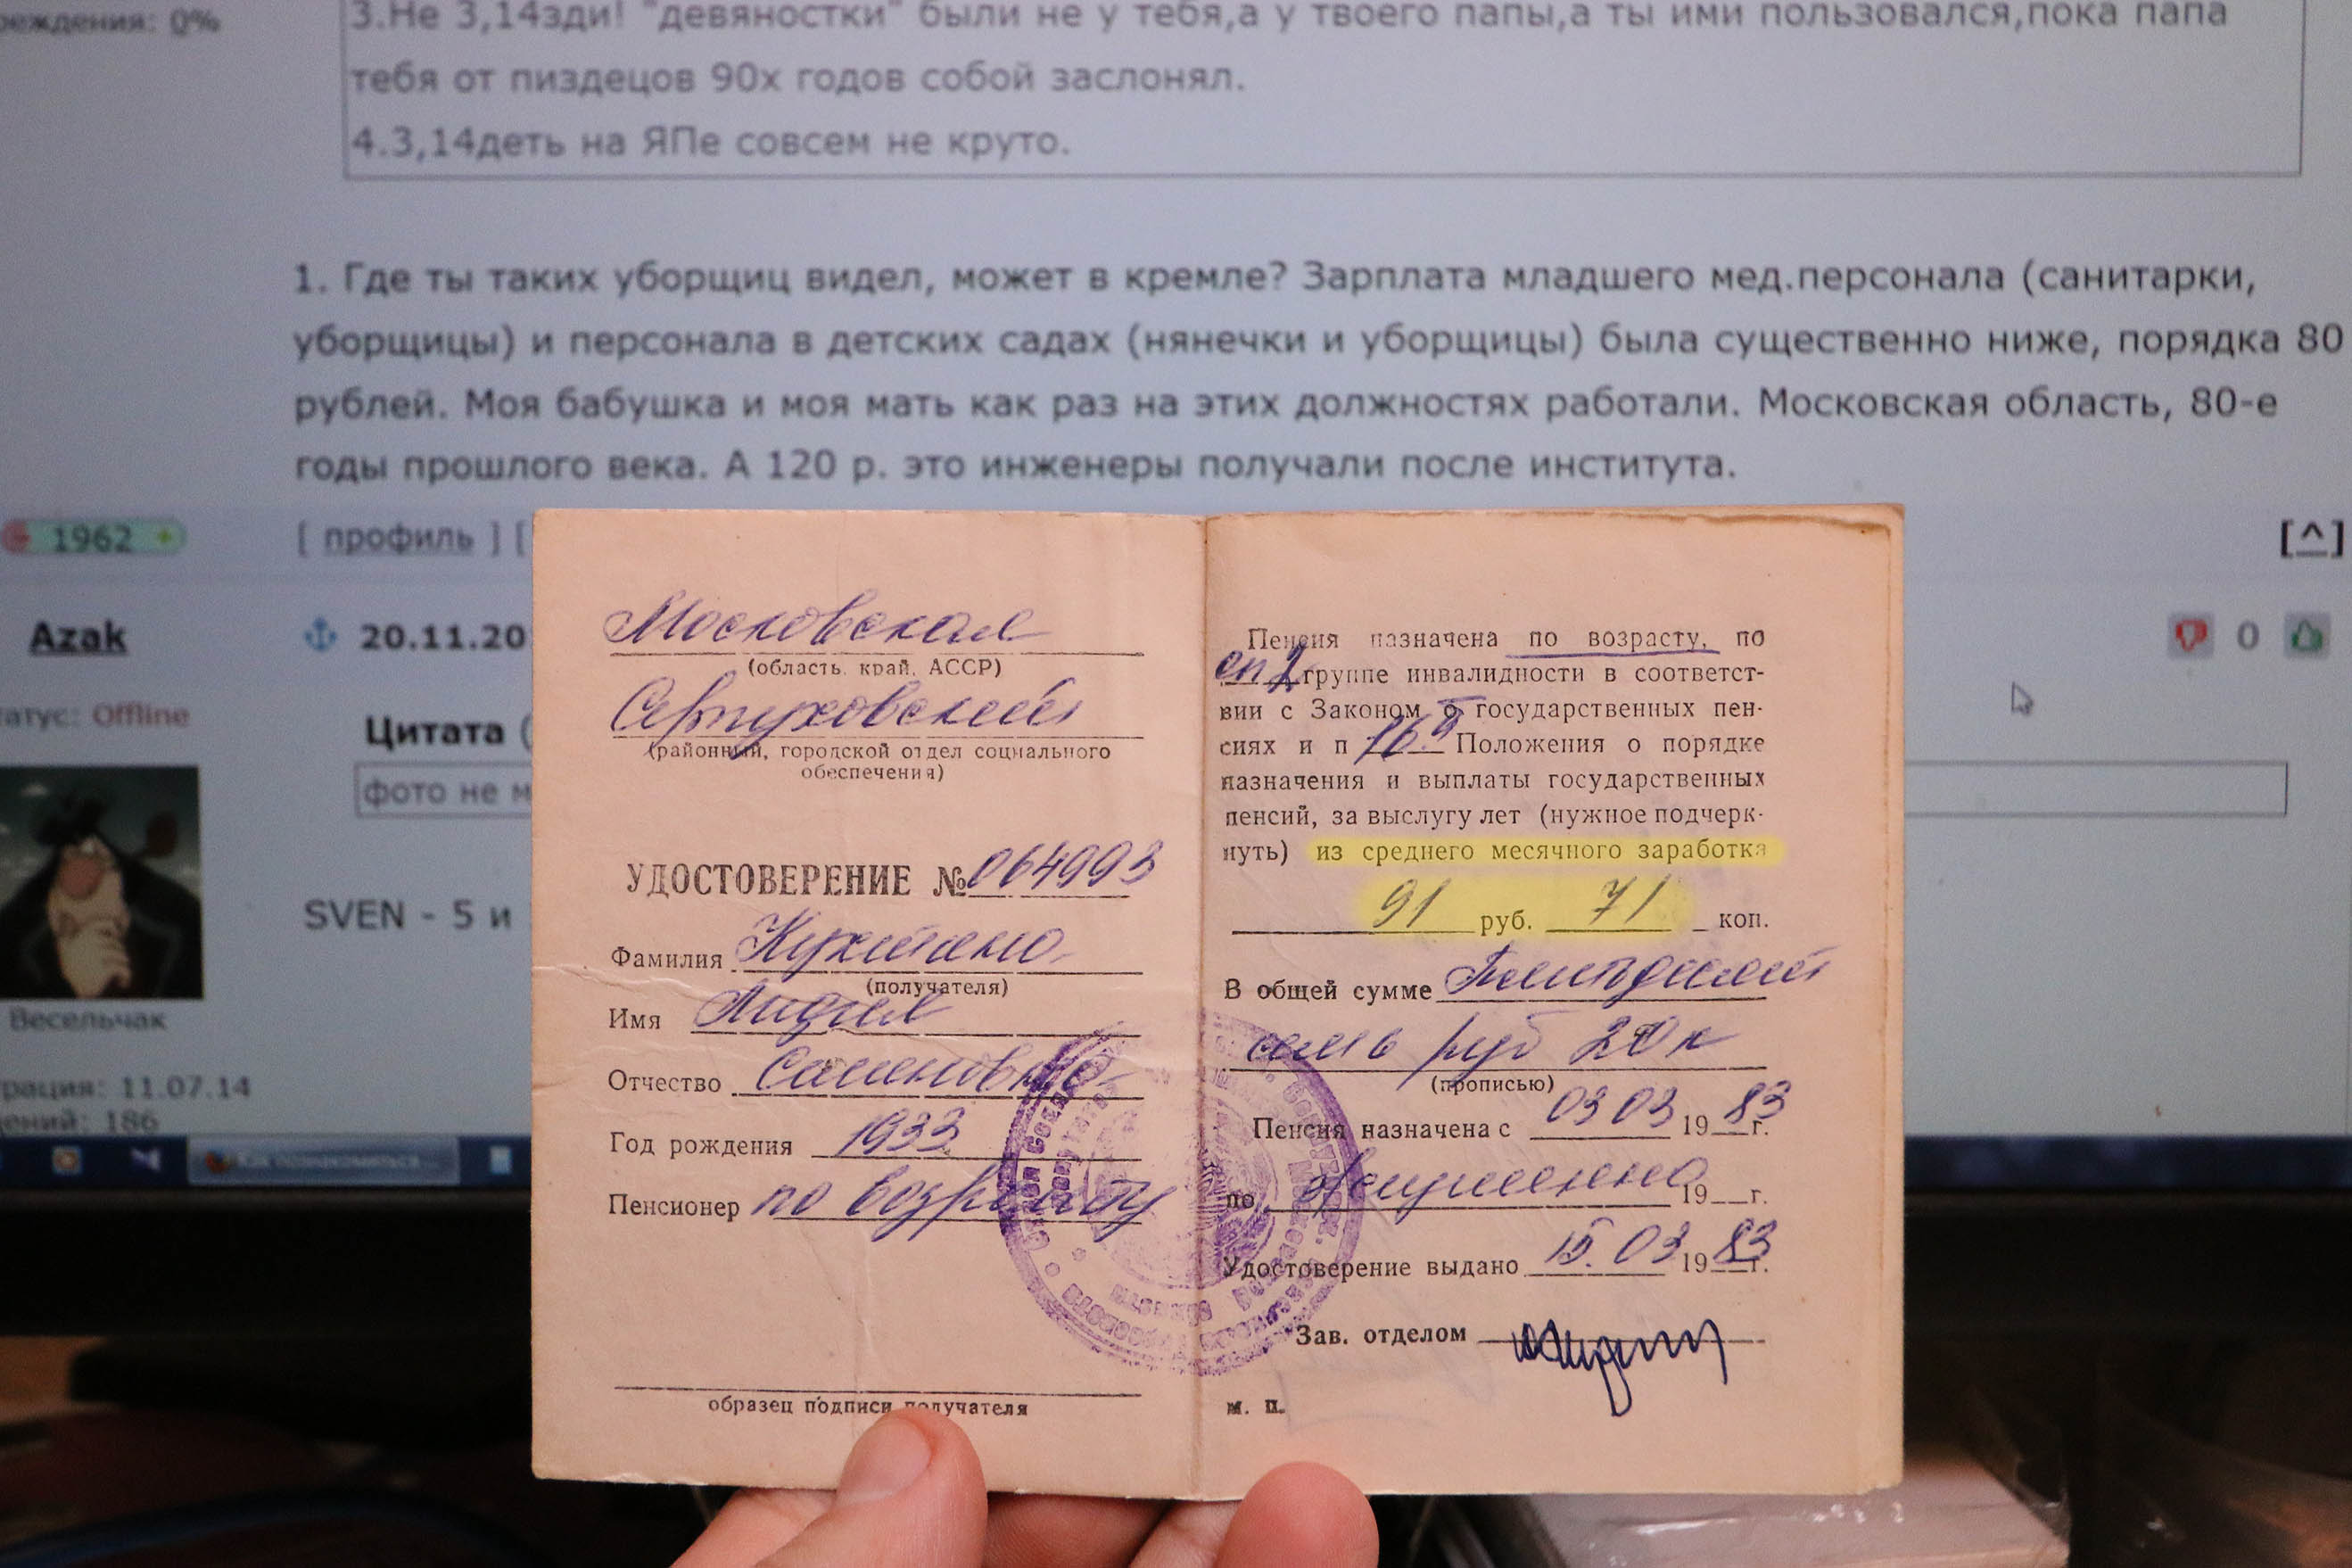 реждения: 0%
3.Не 3,14зди! "девяностки" были не у тебя,а у твоего папы,а ты ими пользовался,пока папа
тебя от пиздецов 90х годов собой заслонял.
4.3,14деть на ЯПе совсем не круто.
1. Где ты таких уборщиц видел, может в кремле? Зарплата младшего мед.персонала (санитарки,
уборщицы) и персонала в детских садах (нянечки и уборщицы) была существенно ниже, порядка 80
рублей. Моя бабушка и моя мать как раз на этих должностях работали. Московская область, 80-е
годы прошлого века. А 120 р. это инженеры получали после института.
1962
[ профиль ] [
[^]
Azak
20.11.20
0
татус: Offline
Цитата (
фото не м
SVEN - 5 и
Весельчак
рация: 11.07.14
ений: 186
Московская
(область, край, АССР)
Серпуховский
(районный, городской отдел социального
обеспечения)
УДОСТОВЕРЕНИЕ № 064993
Фамилия
(получателя)
Имя Лидия
Отчество Семеновна
Год рождения 1933
Пенсионер по возрасту
образец подписи получателя
Пенсия назначена по возрасту, по
сп 2 группе инвалидности в соответст-
вии с Законом о государственных пен-
сиях и п 16 Положения о порядке
назначения и выплаты государственных
пенсий, за выслугу лет (нужное подчерк-
нуть) из среднего месячного заработка
91 руб. 71 коп.
В общей сумме Пятьдесят
семь руб 20 к
(прописью)
Пенсия назначена с 03 03 1983 г.
по пожизненно 19 г.
Удостоверение выдано 15.03 1983 г.
Зав. отделом
м. п.